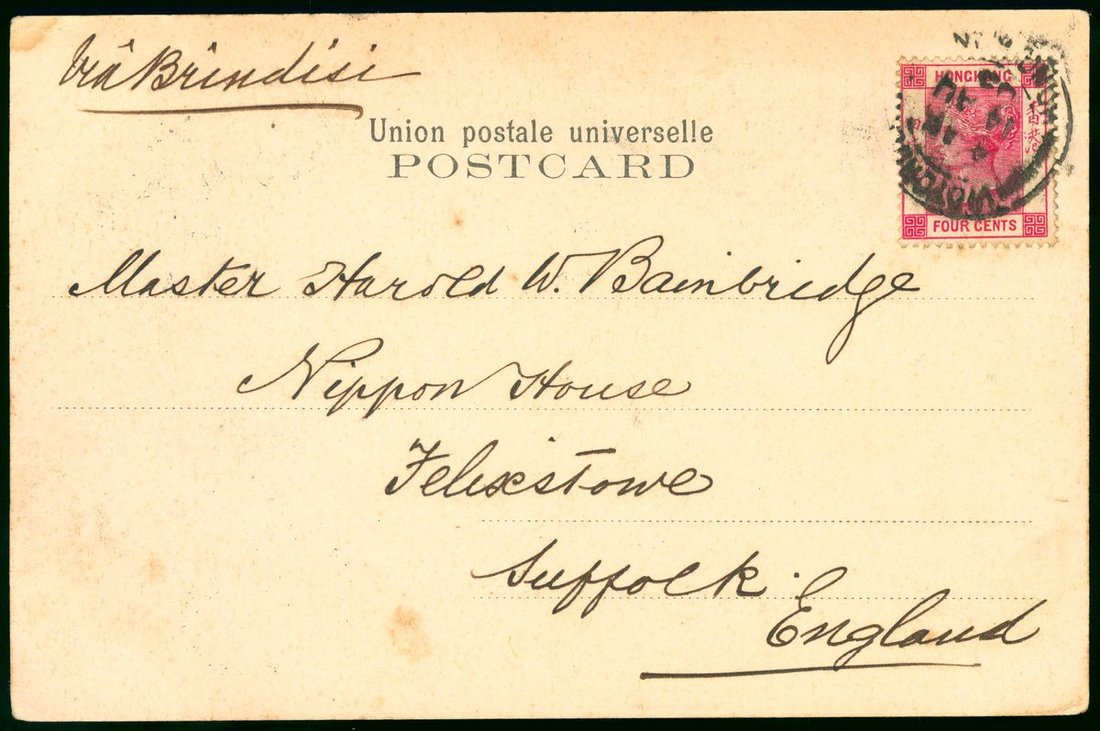 Viâ Brindisi
Union postale universelle
POSTCARD
HONG KONG
香港
FOUR CENTS
VICTORIA
Master Harold W. Bainbridge
Nippon House
Felixstowe
Suffolk.
England